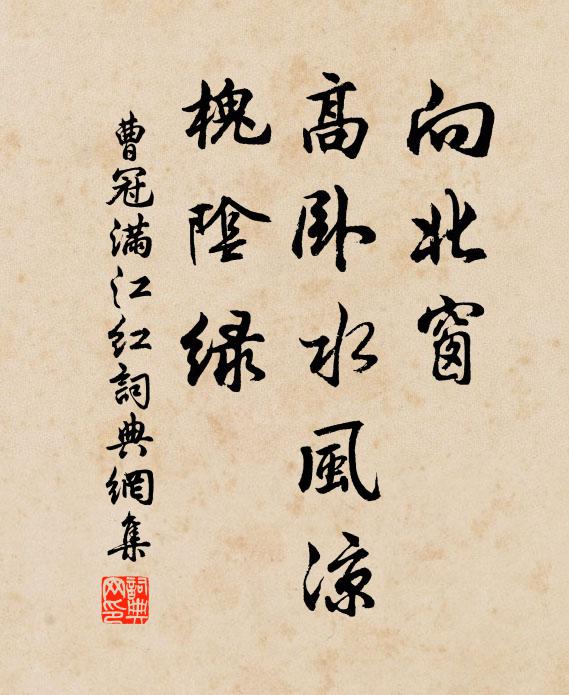 向北窗
高卧水風涼
槐陰緑
曹冠滿江红詞典網集
詞典網印